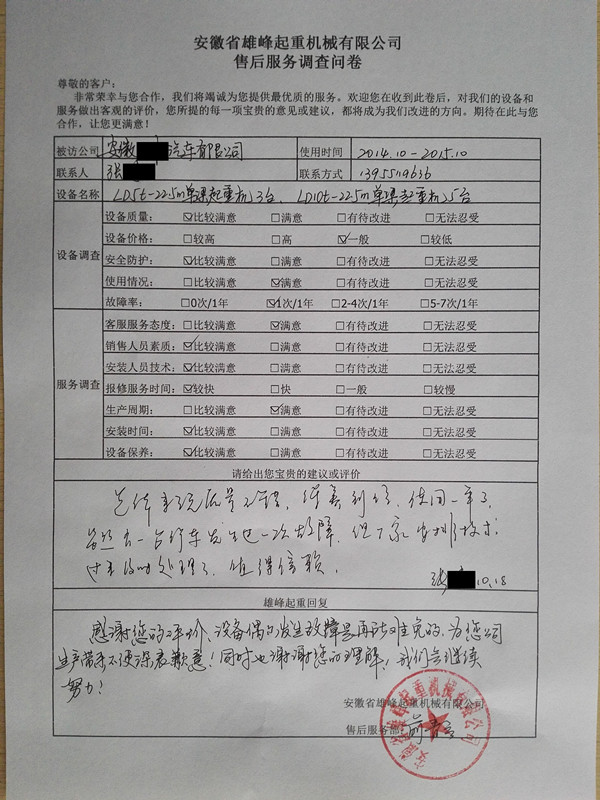 安徽省雄峰起重机械有限公司
售后服务调查问卷
尊敬的客户:
非常荣幸与您合作,我们将竭诚为您提供最优质的服务。欢迎您在收到此卷后,对我们的设备和
服务做出客观的评价,您所提的每一项宝贵的意见或建议,都将成为我们改进的方向。期待在此与您
合作,让您更满意!
被访公司 安徽 汽车有限公司 使用时间 2014.10-2015.10
联系人 张 联系方式
设备名称 LD5t-22.5m单梁起重机3台、LD10t-22.5m单梁起重机5台
设备调查
设备质量: ☑比较满意 □满意 □有待改进 □无法忍受
设备价格: □较高 □高 ☑一般 □较低
安全防护: ☑比较满意 □满意 □有待改进 □无法忍受
使用情况: □比较满意 ☑满意 □有待改进 □无法忍受
故障率: □0次/1年 ☑1次/1年 □2-4次/1年 □5-7次/1年
服务调查
客服服务态度: □比较满意 ☑满意 □有待改进 □无法忍受
销售人员素质: ☑比较满意 □满意 □有待改进 □无法忍受
安装人员技术: ☑比较满意 □满意 □有待改进 □无法忍受
报修服务时间: ☑较快 □快 □一般 □较慢
生产周期: □比较满意 ☑满意 □有待改进 □无法忍受
安装时间: ☑比较满意 □满意 □有待改进 □无法忍受
设备保养: ☑比较满意 □满意 □有待改进 □无法忍受
请给出您宝贵的建议或评价
质量不错,使用一年了,
一台行车发生过一次故障,但厂家安排技术
过来及时处理了,值得信赖。
张 10.18
雄峰起重回复
感谢您的评价,设备偶尔发生故障是再所难免的,为您公司
生产带来不便深表歉意!同时也谢谢您的理解,我们会继续
努力!
安徽省雄峰起重机械有限公司
售后服务部:
安徽省雄峰起重机械有限公司